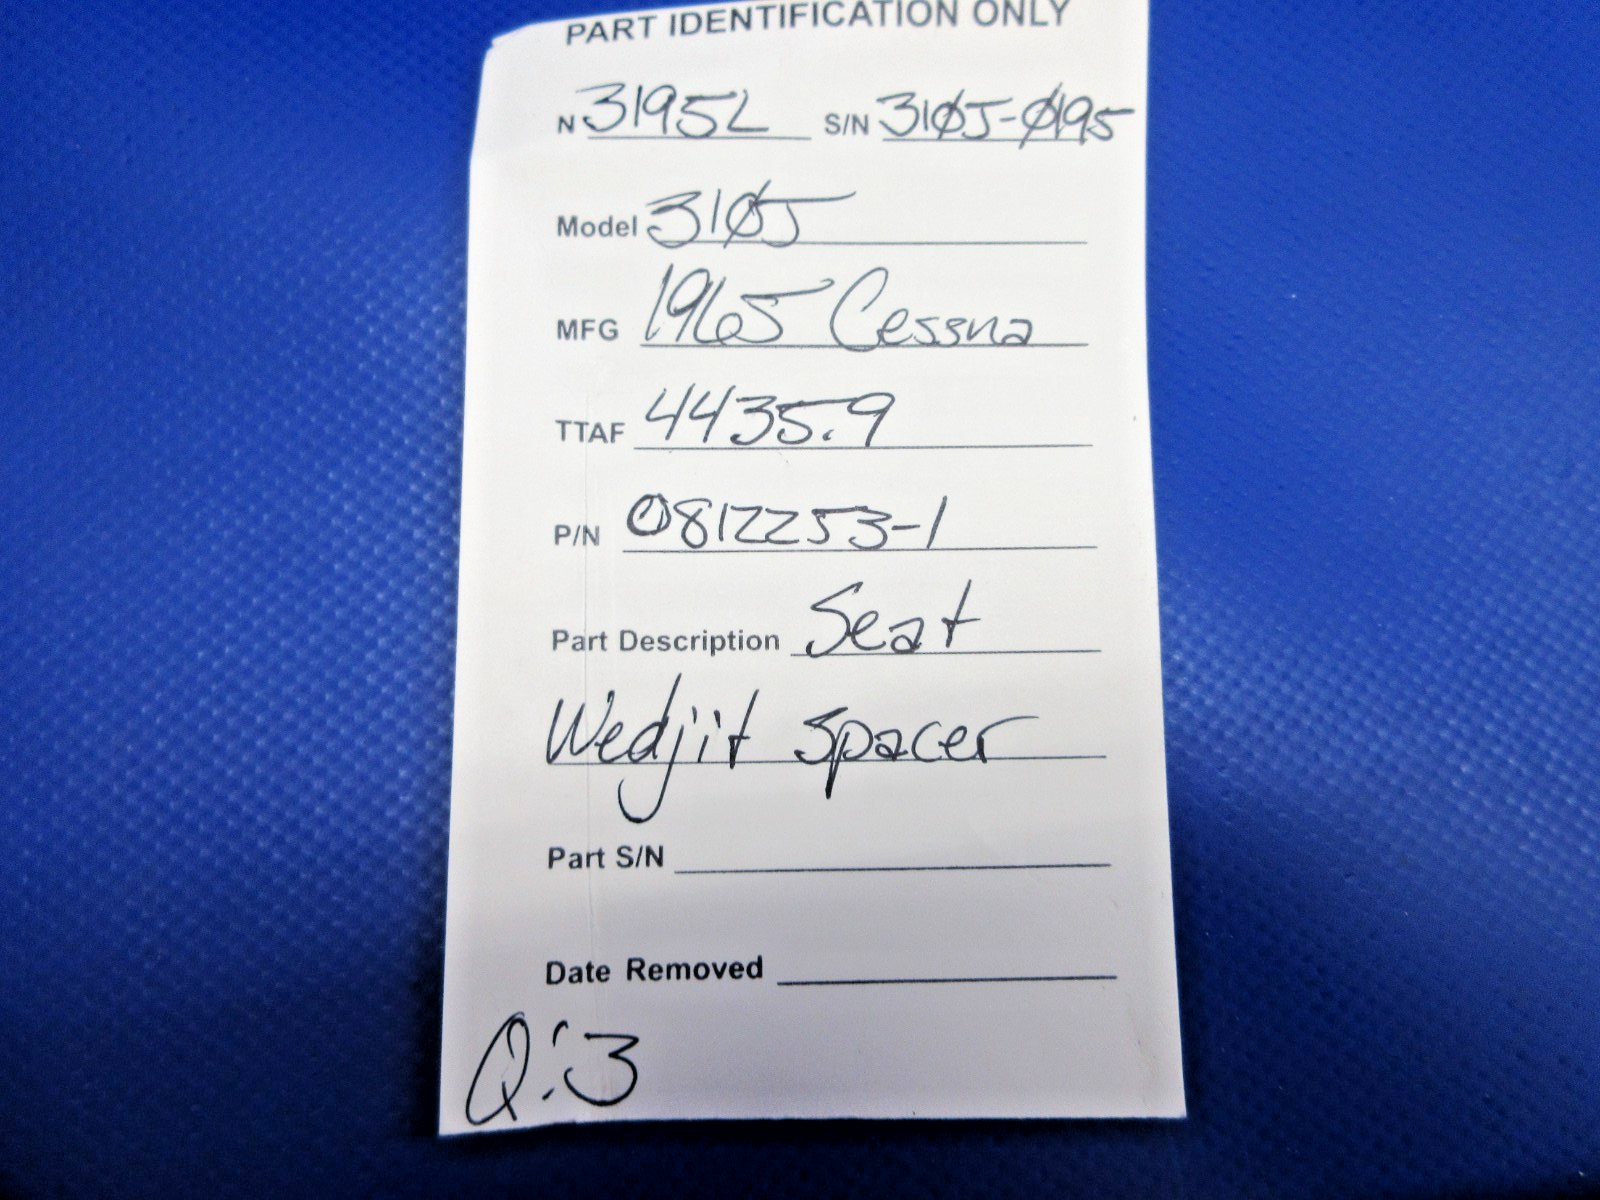 PART IDENTIFICATION ONLY
N 3195L S/N 310J-0195
Model 310J
MFG 1965 Cessna
TTAF 4435.9
P/N 0812253-1
Part Description Seat
Wedjit Spacer
Part S/N
Date Removed
Q:3